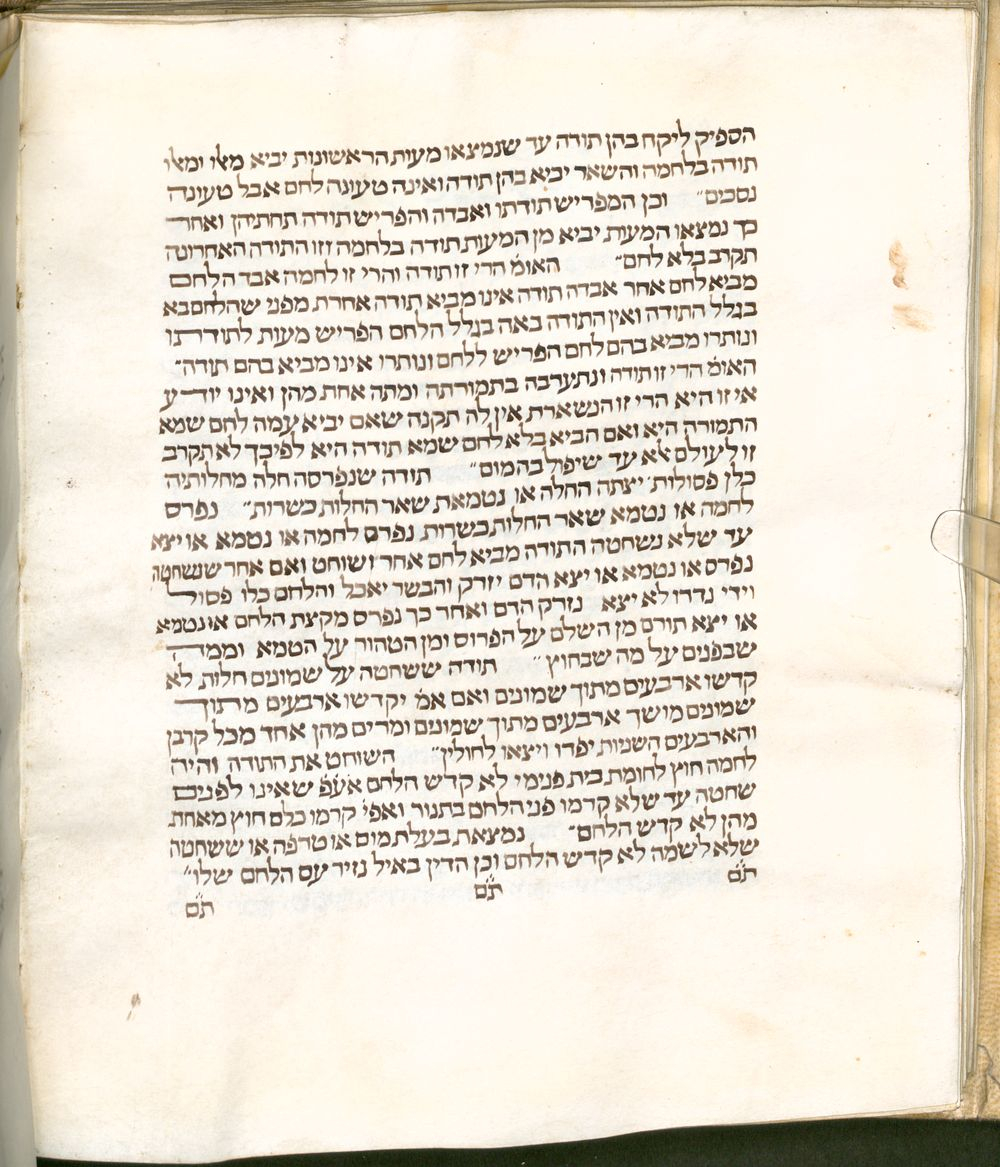 הספיק ליקח בהן תודה עד שנמצאו מעות הראשונות יביא מאלו ומאלו
תודה בלחמה והשאר יביא בהן תודה ואינה טעונה לחם אבל טעונה
נסכים״ וכן המפריש תודתו ואבדה והפריש תודה תחתיהן ואחר
כך נמצאו המעות יביא מן המעות תודה בלחמה וזו התודה האחרונה
תקרב בלא לחם״ האומ׳ הרי זו תודה והרי זו לחמה אבד הלחם
מביא לחם אחר אבדה תודה אינו מביא תודה אחרת מפני שהלחם בא
בגלל התודה ואין התודה באה בגלל הלחם הפריש מעות לתודתו
ונותרו מביא בהם לחם הפריש ללחם ונותרו אינו מביא בהם תודה״
האומ׳ הרי זו תודה ונתערבה בתמורתה ומתה אחת מהן ואינו יודע
אי זו היא הרי זו הנשארת אין לה תקנה שאם יביא עמה לחם שמא
התמורה היא ואם הביא בלא לחם שמא תודה היא לפיכך לא תקרב
זו לעולם אלא עד שיפול בה מום״ תודה שנפרסה חלה מחלותיה
כלן פסולות יצתה החלה או נטמאת שאר החלות כשרות״ נפרס
לחמה או נטמא שאר החלות כשרות נפרס לחמה או נטמא או יצא
עד שלא נשחטה התודה מביא לחם אחר ושוחט ואם אחר שנשחטה
נפרס או נטמא או יצא הדם יזרק והבשר יאכל והלחם כלו פסול
וידי נדרו לא יצא נזרק הדם ואחר כך נפרס מקצת הלחם או נטמא
או יצא תורם מן השלם על הפרוס ומן הטהור על הטמא וממה
שבפנים על מה שבחוץ״ תודה ששחטה על שמונים חלות לא
קדשו ארבעים מתוך שמונים ואם אמ׳ יקדשו ארבעים מתוך
שמונים מושך ארבעים מתוך שמונים ומרים מהן אחד מכל קרבן
והארבעים השניות יפדו ויצאו לחולין״ השוחט את התודה והיה
לחמה חוץ לחומת בית פגימי לא קדש הלחם אעפ׳ שאינו לפנים
שחטה עד שלא קרמו פני הלחם בתנור ואפי׳ קרמו כלם חוץ מאחת
מהן לא קדש הלחם״ נמצאת בעלת מום או טרפה או ששחטה
שלא לשמה לא קדש הלחם וכן הדין באיל נזיר עם הלחם שלו״
תם תם תם